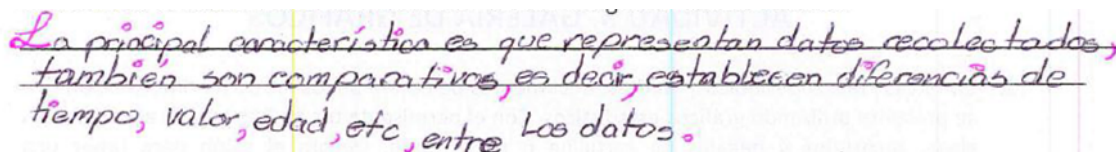 La principal característica es que representan datos recolectados,
también son comparativos, es decir, establecen diferencias de
tiempo, valor, edad, etc, entre Los datos.